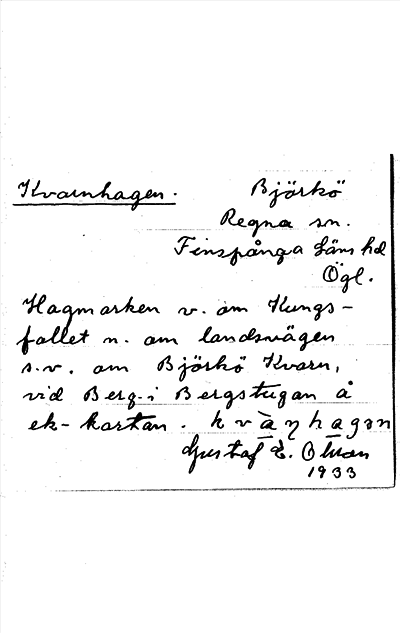 Kvarnhagen. Björkö
Regna sn.
Finspånga Läns hd
Ögl.
Hagmarken v. om Kungs-
fallet n. om landsvägen
s.v. om Björkö Kvarn,
vid Berg i Bergstugan å
ek-kartan.
Gustaf E.
1933